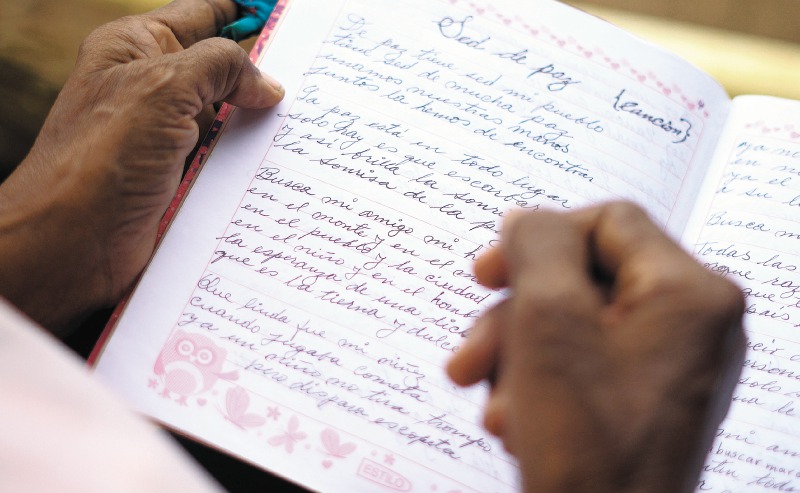 Sed de paz {canción}
De paz tiene sed mi pueblo
tiene sed de mucha paz
unamos nuestras manos
juntos la hemos de encontrar
La paz está en todo lugar
solo hay es que escarbar
Y así brilla la sonri
la sonrisa de la p
Busca mi amigo mi h
en el monte y en el
en el pueblo y la ciudad
en el niño y en el homb
la esperanza de una
que es la tierna y dulce
Que linda que mi niño
cuando jugaba cometa
ya un niño no tira trompo
pero dispara escopeta
ESTILO
ya no
en m
ya el
a su l
Busca m
Todas las
porque
que
pais
cir
person
solo
ua le
mi am
buscar
todo